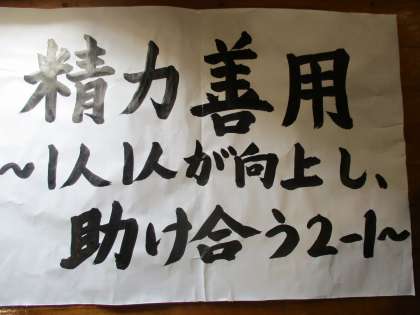 精力善用
～1人1人が向上し、
助け合う2-1～